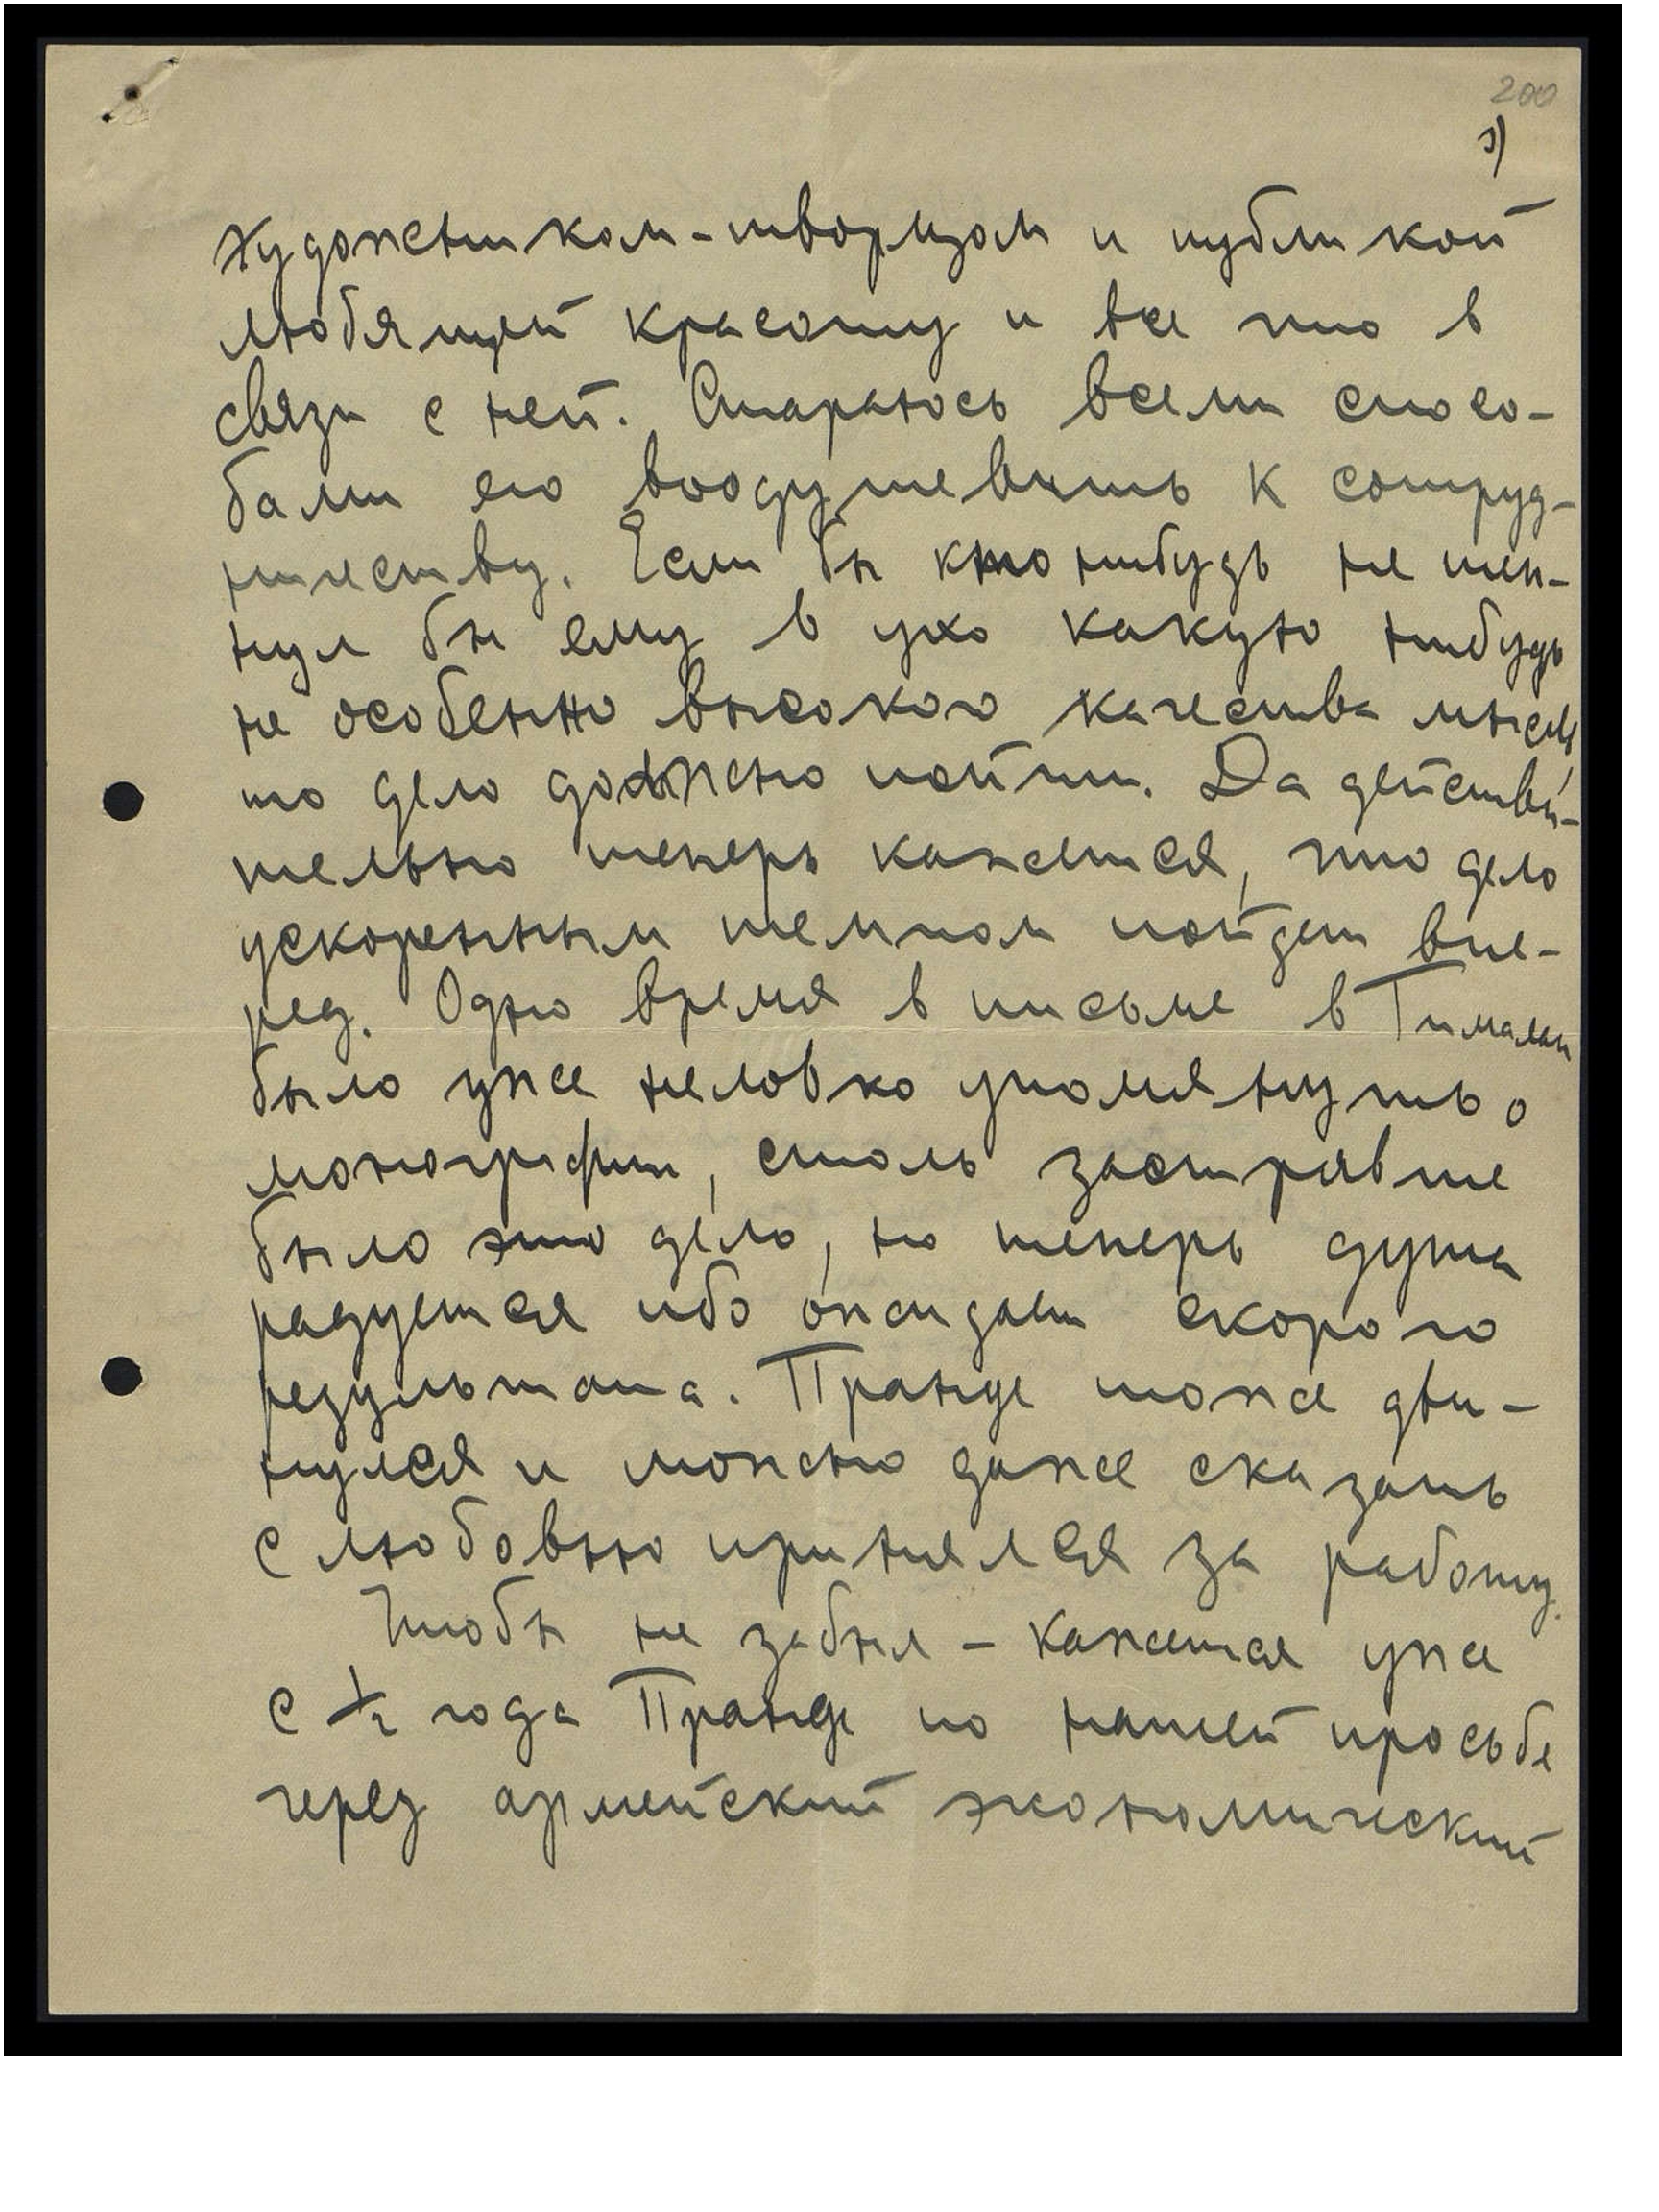 200
3)
художником-творцом и публикой
любящей красоту и все что в
связи с ней. Стараюсь всеми спосо-
бами его воодушевить к сотруд-
ничеству. Если бы кто нибудь не шеп-
нул бы ему в ухо какую нибудь
не особенно высокого качества мысль
то дело должно пойти. Да действи-
тельно теперь кажется, что дело
ускоренным темпом пойдет впе-
ред. Одно время в письме в Гималаи
было уже неловко упомянуть о
монографии, столь застрявше
было это дело, но теперь душа
радуется ибо ожидаем скорого
результата. Пранде тоже дви-
нулся и можно даже сказать
с любовью принялся за работу.
Чтобы не забыл – кажется уже
с ½ года Пранде по нашей просьбе
через армейский экономический